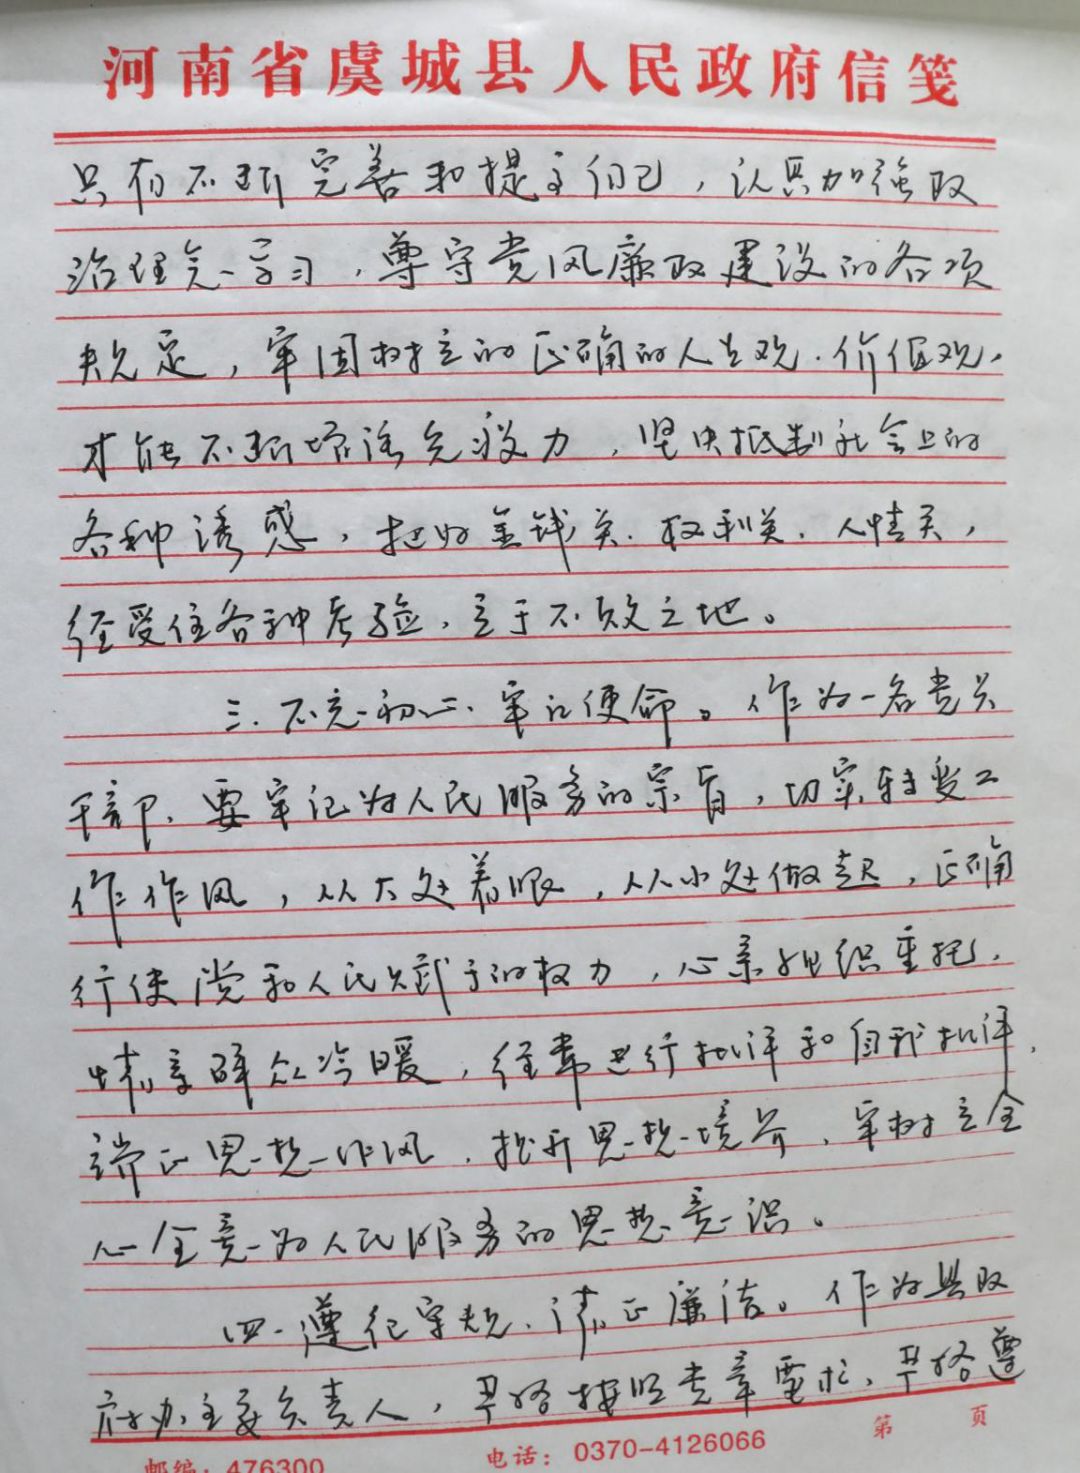 河南省虞城县人民政府信笺
只有不断完善和提高自己，认真加强政
治理论学习，尊守党风廉政建设的各项
规定，牢固树立的正确的人生观、价值观，
才能不断增强免疫力，坚决抵制社会上的
各种诱惑，把好金钱关、权利关、人情关，
经受住各种考验，立于不败之地。
三、不忘初心、牢记使命。作为一名党员
干部，要牢记为人民服务的宗旨，切实转变工
作作风，从大处着眼，从小处做起，正确
行使党和人民赋予的权力，心系组织重托，
情系群众冷暖，经常进行批评和自我批评，
端正思想作风，提升思想境界，牢树立全
心全意为人民服务的思想意识。
四、遵纪守规、清正廉洁。作为县政
府办主要负责人，严格按照党章要求、严格遵
第 页
邮编：476300 电话：0370-4126066